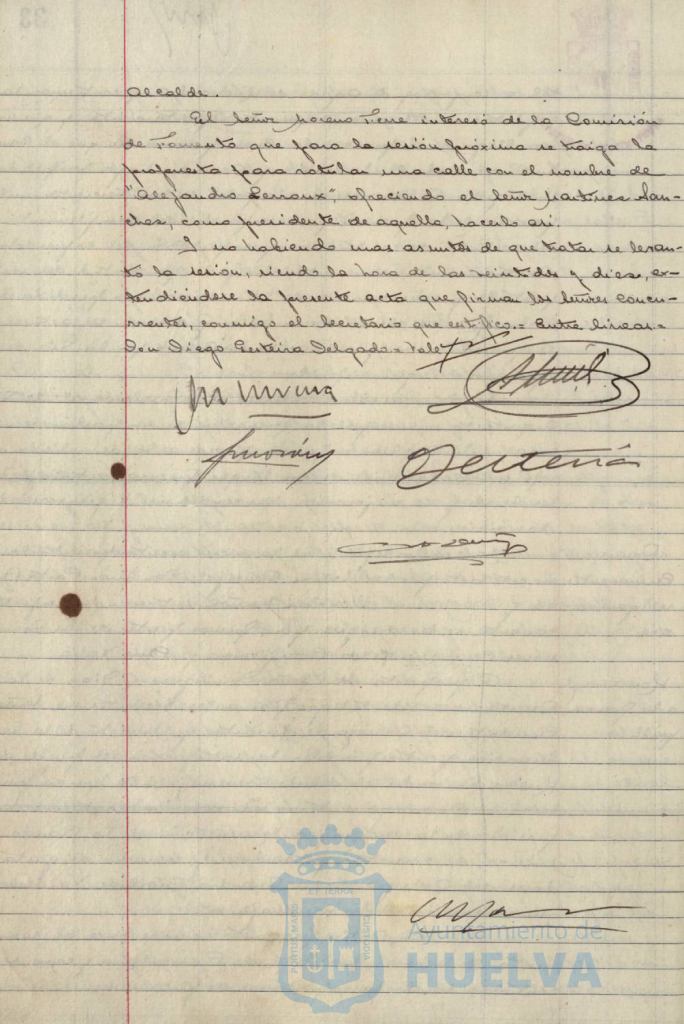 Alcalde.
El Señor Moreno tiene interesó de la Comisión
de Fomento que para la sesión próxima se traiga la
propuesta para rotular una calle con el nombre de
"Alejandro Lerroux", ofreciendo el Señor Martinez San-
chez, como presidente de aquella, hacerlo asi.
Y no habiendo mas asuntos de que tratar se levan-
tó la sesión, siendo la hora de las veintidos y diez, ex-
tendiéndose la presente acta que firman los Señores concu-
rrentes, conmigo el Secretario que certifico.= Entre lineas.=
Don Diego Delgado= Vale
PORTUS MARIS
ET TERRÆ
CUSTODIA
Ayuntamiento de
HUELVA